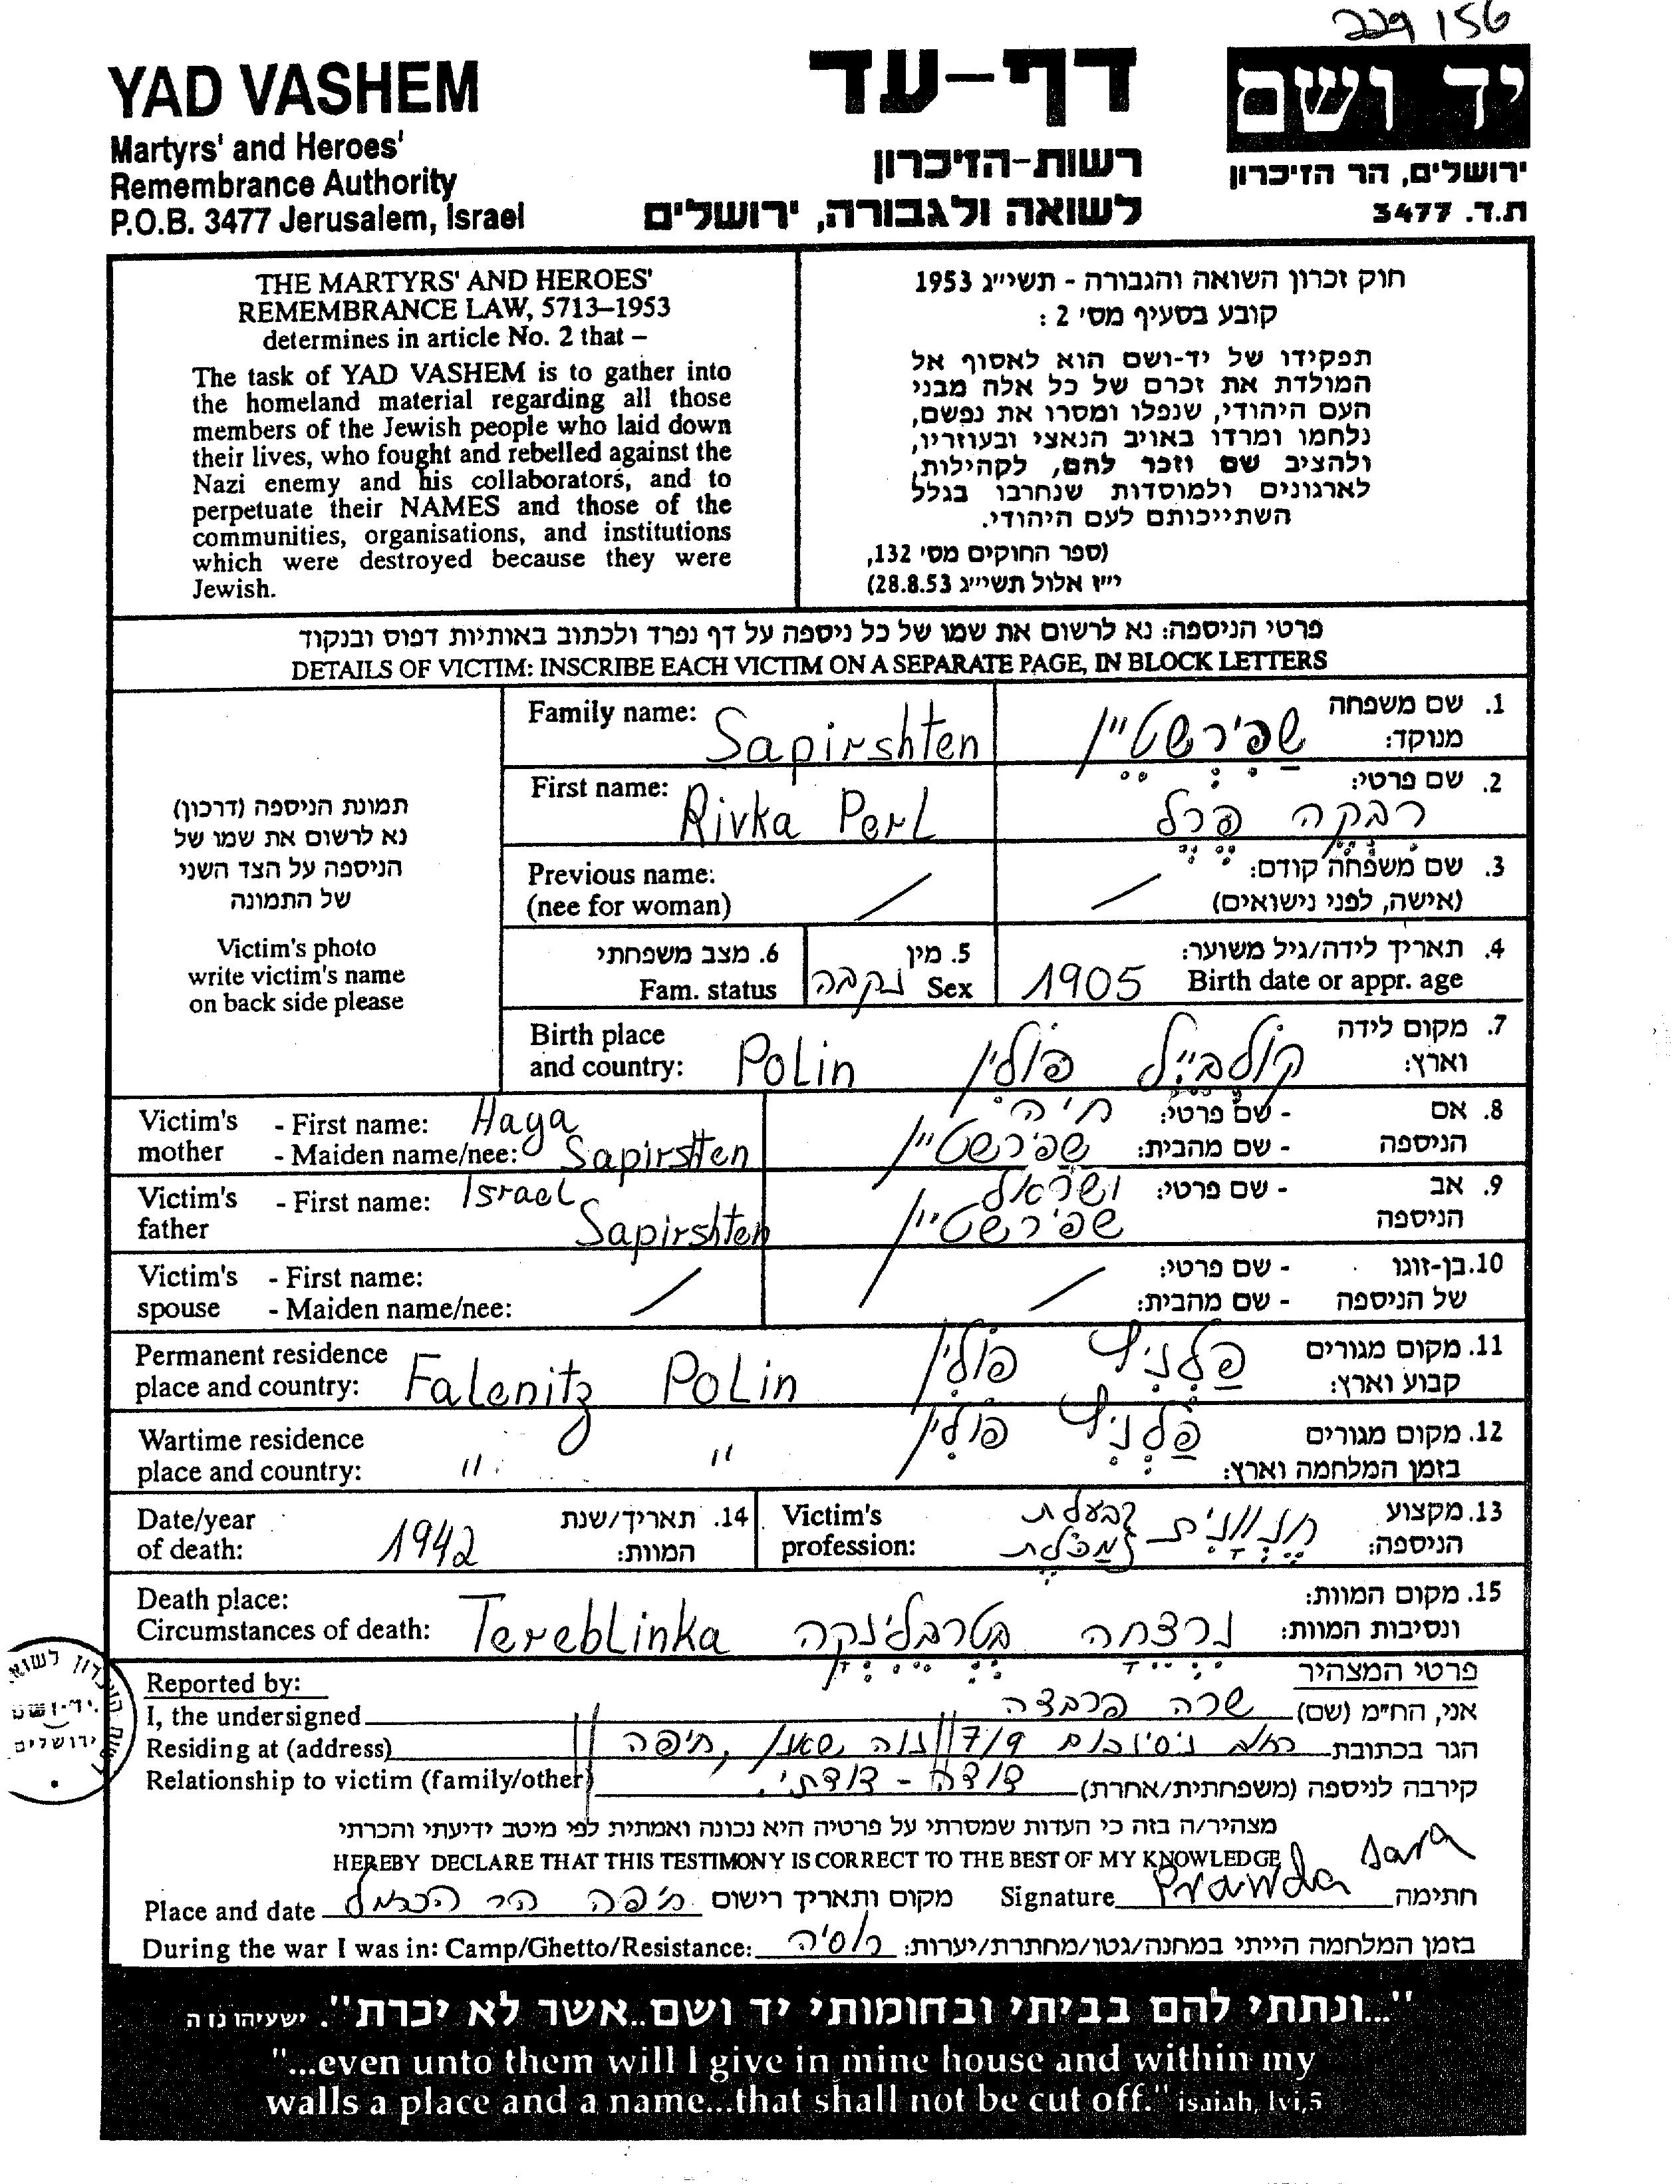 229 156
YAD VASHEM
Martyrs' and Heroes'
Remembrance Authority
P.O.B. 3477 Jerusalem, Israel
דף-עד
רשות-הזיכרון
לשואה ולגבורה, ירושלים
יד ושם
ירושלים, הר הזיכרון
ת.ד. 3477
THE MARTYRS' AND HEROES'
REMEMBRANCE LAW, 5713–1953
determines in article No. 2 that –
The task of YAD VASHEM is to gather into
the homeland material regarding all those
members of the Jewish people who laid down
their lives, who fought and rebelled against the
Nazi enemy and his collaborators, and to
perpetuate their NAMES and those of the
communities, organisations, and institutions
which were destroyed because they were
Jewish.
חוק זכרון השואה והגבורה - תשי״ג 1953
קובע בסעיף מס' 2 :
תפקידו של יד-ושם הוא לאסוף אל
המולדת את זכרם של כל אלה מבני
העם היהודי, שנפלו ומסרו את נפשם,
נלחמו ומרדו באויב הנאצי ובעוזריו,
ולהציב שם וזכר להם, לקהילות,
לארגונים ולמוסדות שנחרבו בגלל
השתייכותם לעם היהודי.
(ספר החוקים מס' 132,
י״ז אלול תשי״ג 28.8.53)
פרטי הניספה: נא לרשום את שמו של כל ניספה על דף נפרד ולכתוב באותיות דפוס ובנקוד
DETAILS OF VICTIM: INSCRIBE EACH VICTIM ON A SEPARATE PAGE, IN BLOCK LETTERS
תמונת הניספה (דרכון)
נא לרשום את שמו של
הניספה על הצד השני
של התמונה
Victim's photo
write victim's name
on back side please
Family name: Sapirshten שפירשטיין 1. שם משפחה
מנוקד:
First name: Rivka Perl רבקה פרל 2. שם פרטי:
Previous name: / / 3. שם משפחה קודם:
(nee for woman) (אישה, לפני נישואים)
6. מצב משפחתי 5. מין נקבה 4. תאריך לידה/גיל משוער:
Fam. status Sex 1905 Birth date or appr. age
Birth place
and country: Polin קולבייל פולין 7. מקום לידה
וארץ:
Victim's mother - First name: Haya חיה - שם פרטי: 8. אם
- Maiden name/nee: Sapirshten שפירשטיין - שם מהבית: הניספה
Victim's father - First name: Israel ישראל - שם פרטי: 9. אב
Sapirshten שפירשטיין הניספה
Victim's spouse - First name: - שם פרטי: 10. בן-זוגו
- Maiden name/nee: / / - שם מהבית: של הניספה
Permanent residence
place and country: Falenitz Polin פלניץ פולין 11. מקום מגורים
קבוע וארץ:
Wartime residence
place and country: " " פלניץ פולין 12. מקום מגורים
בזמן המלחמה וארץ:
Date/year
of death: 1942 14. תאריך/שנת
המוות:
Victim's
profession: חנוונית בעלת מכולת 13. מקצוע
הניספה:
Death place:
Circumstances of death: Tereblinka נרצחה בטרבלינקה 15. מקום המוות:
ונסיבות המוות:
Reported by: פרטי המצהיר
I, the undersigned שרה פרבדה אני, החי״מ (שם)
Residing at (address) 7/9 נוה שאנן, חיפה הגר בכתובת
Relationship to victim (family/other) דודה - דודתי. קירבה לניספה (משפחתית/אחרת)
מצהיר/ה בזה כי העדות שמסרתי על פרטיה היא נכונה ואמתית לפי מיטב ידיעתי והכרתי
HEREBY DECLARE THAT THIS TESTIMONY IS CORRECT TO THE BEST OF MY KNOWLEDGE
Place and date חיפה הר הכרמל מקום ותאריך רישום Signature Prawda Sara חתימה
During the war I was in: Camp/Ghetto/Resistance: רוסיה בזמן המלחמה הייתי במחנה/גטו/מחתרת/יערות:
"...ונתתי להם בביתי ובחומותי יד ושם..אשר לא יכרת". ישעיהו נו ה
"...even unto them will I give in mine house and within my
walls a place and a name...that shall not be cut off." isaiah, lvi,5